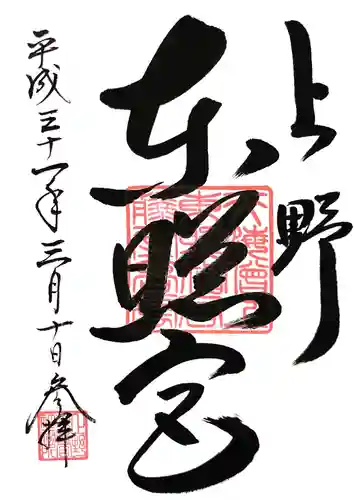 上野
東照宮
平成三十一年三月十日参拝